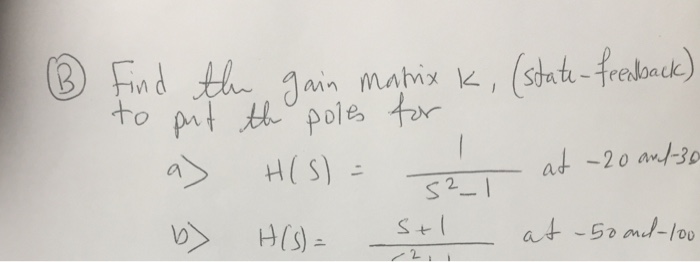 B Find the gain matrix K, (state-feedback)
to put the poles for
a) H(s) = 1 / s²-1 at -20 and -30
b) H(s) = s+1 / at -50 and -100